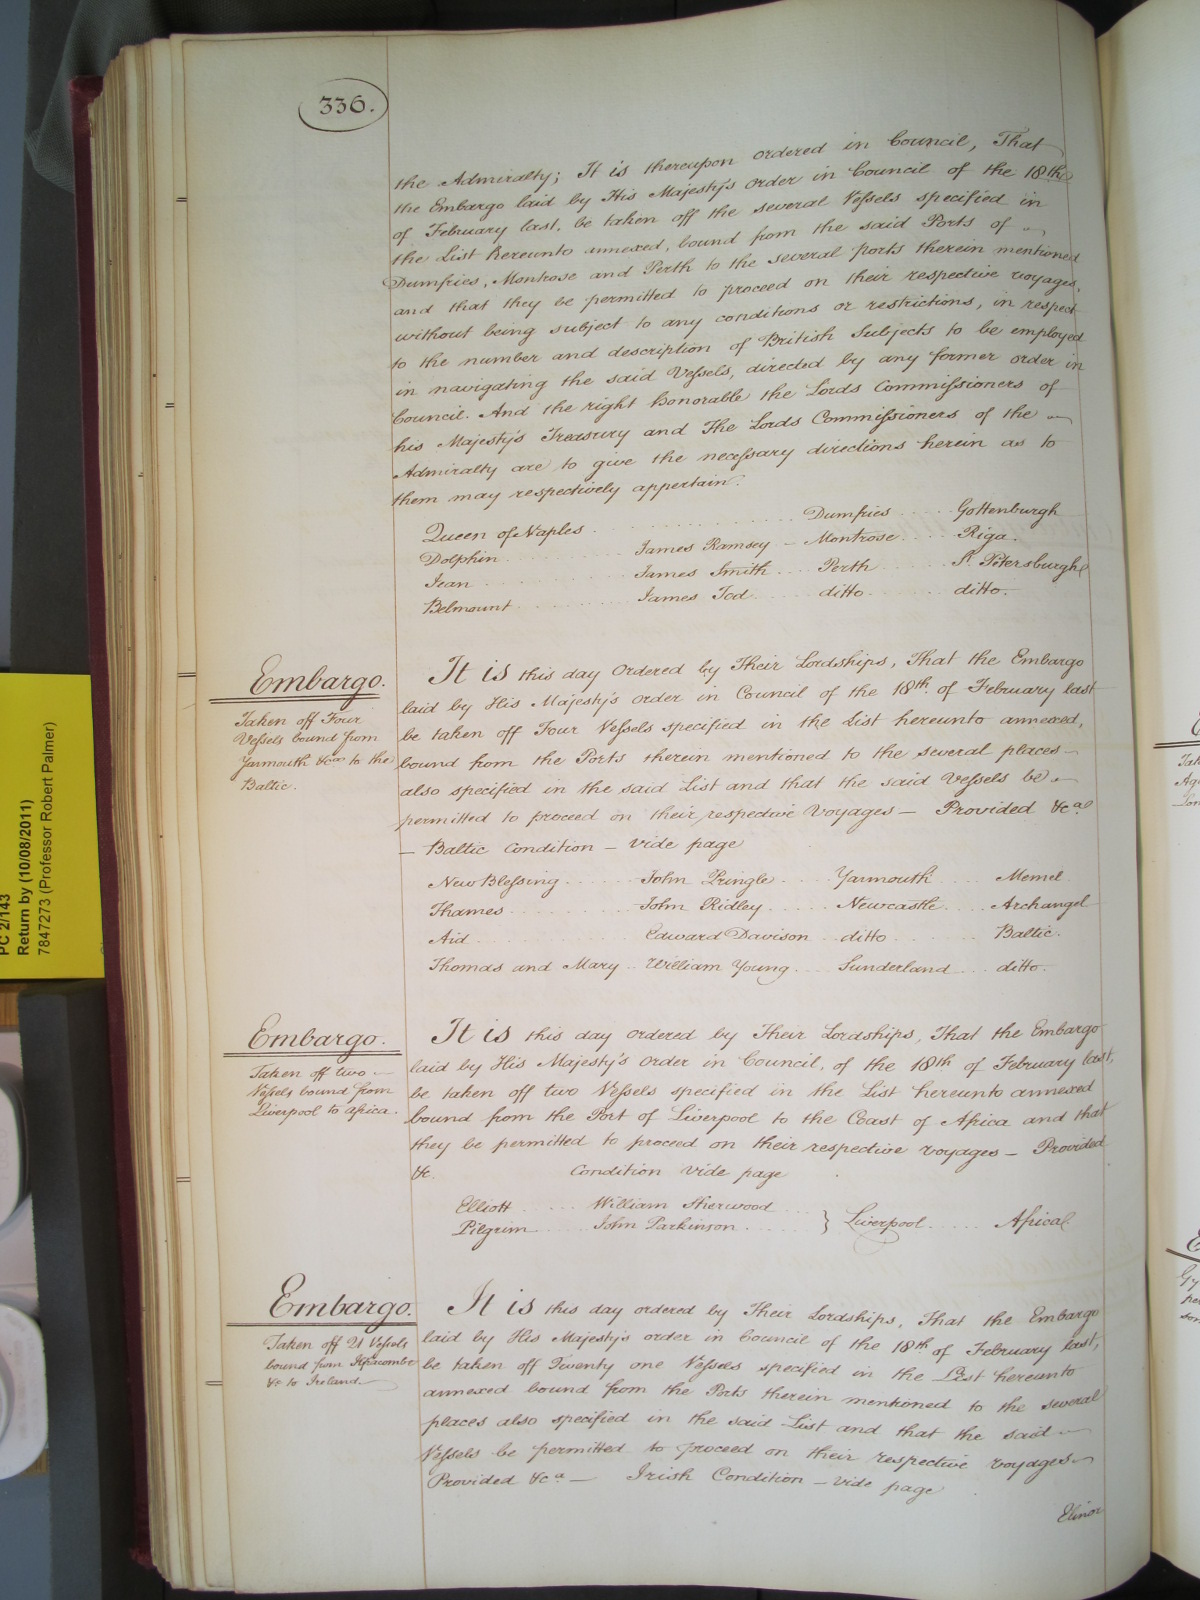 336.
the Admiralty; It is thereupon ordered in Council, That
the Embargo laid by His Majesty's order in Council of the 18th
of February last, be taken off the several Vessels specified in
the List hereunto annexed, bound from the said Ports of
Dumfries, Montrose and Perth to the several ports therein mentioned
and that they be permitted to proceed on their respective voyages,
without being subject to any conditions or restrictions, in respect
to the number and description of British Subjects to be employed
in navigating the said Vessels, directed by any former order in
Council. And the right honorable the Lords Commissioners of
his Majesty's Treasury and The Lords Commissioners of the
Admiralty are to give the necessary directions herein as to
them may respectively appertain.
Queen of Naples Dumfries Gottenburgh
Dolphin James Ramsey Montrose Riga.
Jean James Smith Perth St. Petersburgh
Belmount James Tod ditto ditto.
Embargo.
Taken off Four
Vessels bound from
Yarmouth &ca to the
Baltic.
It is this day Ordered by Their Lordships, That the Embargo
laid by His Majesty's order in Council of the 18th of February last
be taken off Four Vessels specified in the List hereunto annexed,
bound from the Ports therein mentioned to the several places
also specified in the said List and that the said Vessels be
permitted to proceed on their respective Voyages — Provided &ca
— Baltic Condition — vide page
New Blessing John Pringle Yarmouth Memel
Thames John Ridley Newcastle Archangel
Aid Edward Davison ditto Baltic.
Thomas and Mary William Young Sunderland ditto.
Embargo.
Taken off two
Vessels bound from
Liverpool to africa.
It is this day ordered by Their Lordships, That the Embargo
laid by His Majesty's Order in Council, of the 18th of February last,
be taken off two Vessels specified in the List hereunto annexed
bound from the Port of Liverpool to the Coast of Africa and that
they be permitted to proceed on their respective voyages — Provided
&c. Condition vide page
Elliott William Sherwood
Pilgrim John Parkinson } Liverpool Africa
Embargo.
Taken off 21 Vessels
bound from Ilfracombe
&c to Ireland
It is this day ordered by Their Lordships, That the Embargo
laid by His Majesty's order in Council of the 18th of February last,
be taken off Twenty one Vessels specified in the List hereunto
annexed bound from the Ports therein mentioned to the several
places also specified in the said List and that the said
Vessels be permitted to proceed on their respective voyages
Provided &ca — Irish Condition — vide page
Elinor
PC 2/143
Return by (10/08/2011)
7847273 (Professor Robert Palmer)